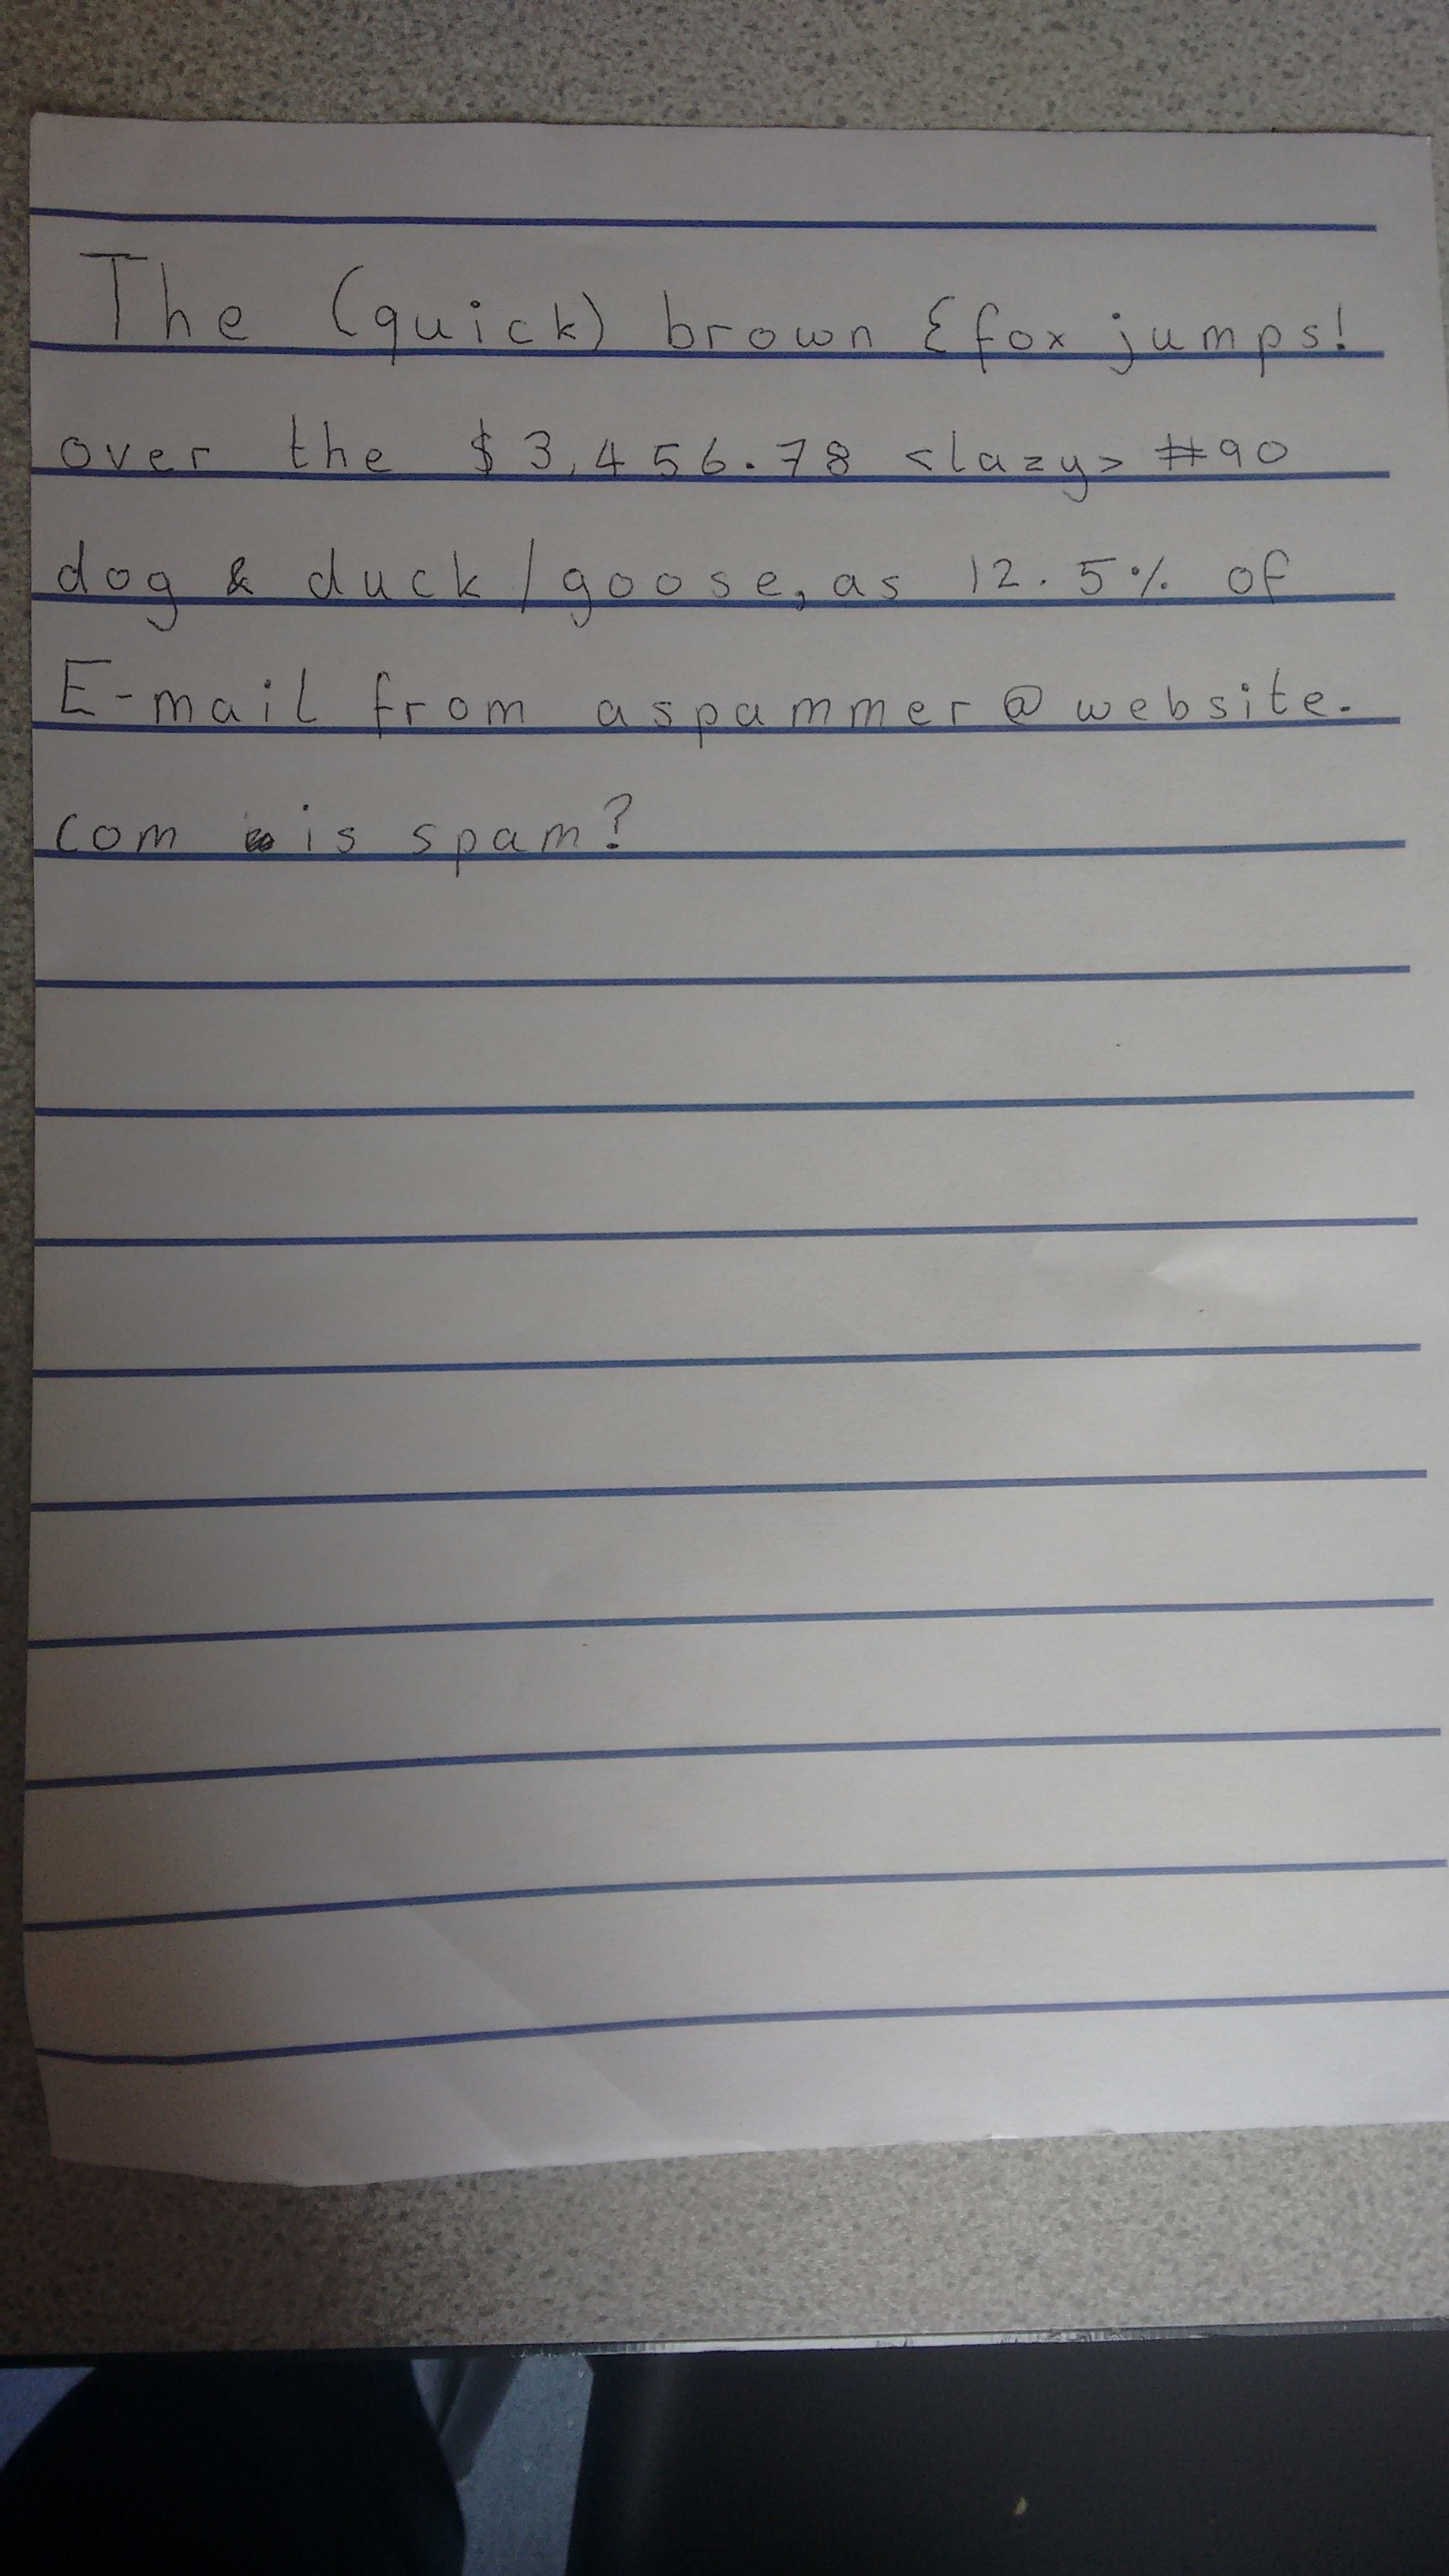 The (quick) brown {fox jumps!
over the $3,456.78 <lazy> #90
dog & duck/goose, as 12.5% of
E-mail from aspammer@website.
com is spam?